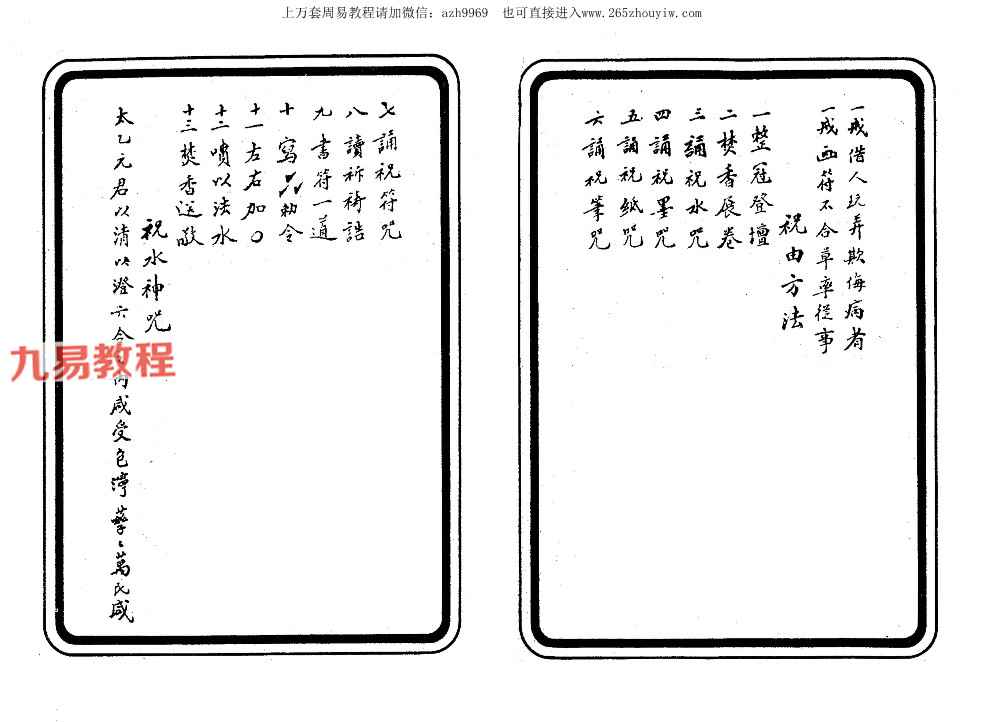 上万套周易教程请加微信：azh9969 也可直接进入www.265zhouyiw.com
一戒借人玩弄欺侮病者
一戒画符不合草率從事
祝由方法
一整冠登壇
二焚香展卷
三誦祝水咒
四誦祝墨咒
五誦祝紙咒
六誦祝筆咒
七誦祝符咒
八讀祚禱誥
九書符一道
十寫 勅令
十一左右加〇
十二噴以法水
十三焚香送
祝水神咒
太乙元君以清以澄六合 咸受 萬民咸
九易教程